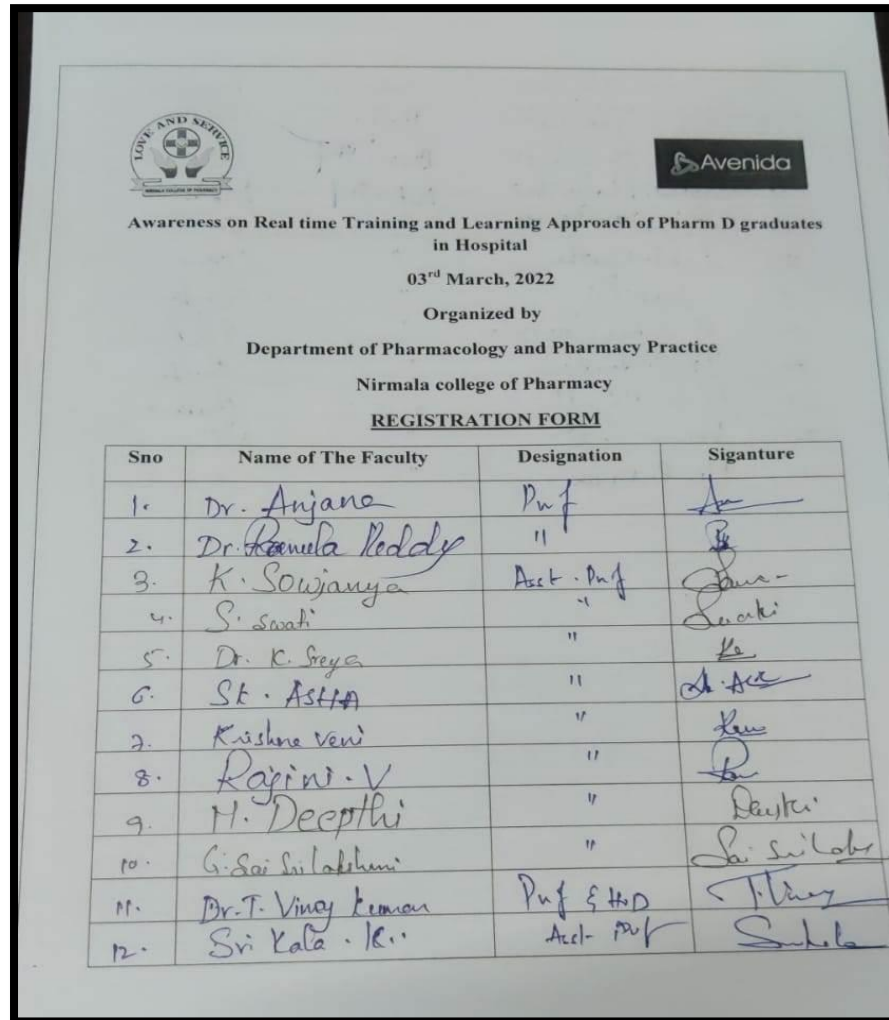 LOVE AND SERVICE
NIRMALA COLLEGE OF PHARMACY
Avenida
Awareness on Real time Training and Learning Approach of Pharm D graduates
in Hospital
03rd March, 2022
Organized by
Department of Pharmacology and Pharmacy Practice
Nirmala college of Pharmacy
REGISTRATION FORM
Sno Name of The Faculty Designation Siganture
1. Dr. Anjana Prof
2. Dr. Reddy "
3. K. Sowjanya Asst. Prof
4. S. Swati " Swati
5. Dr. K. Sreya "
6. Sk. ASHA "
7. Krishna Veni "
8. Rajini. V "
9. M. Deepthi "
10. G. Sai Sri Lakshmi "
11. Dr. T. Vinay Kumar Prof & HOD T. Vinay
12. Sri Kala. K.. Asst- Prof